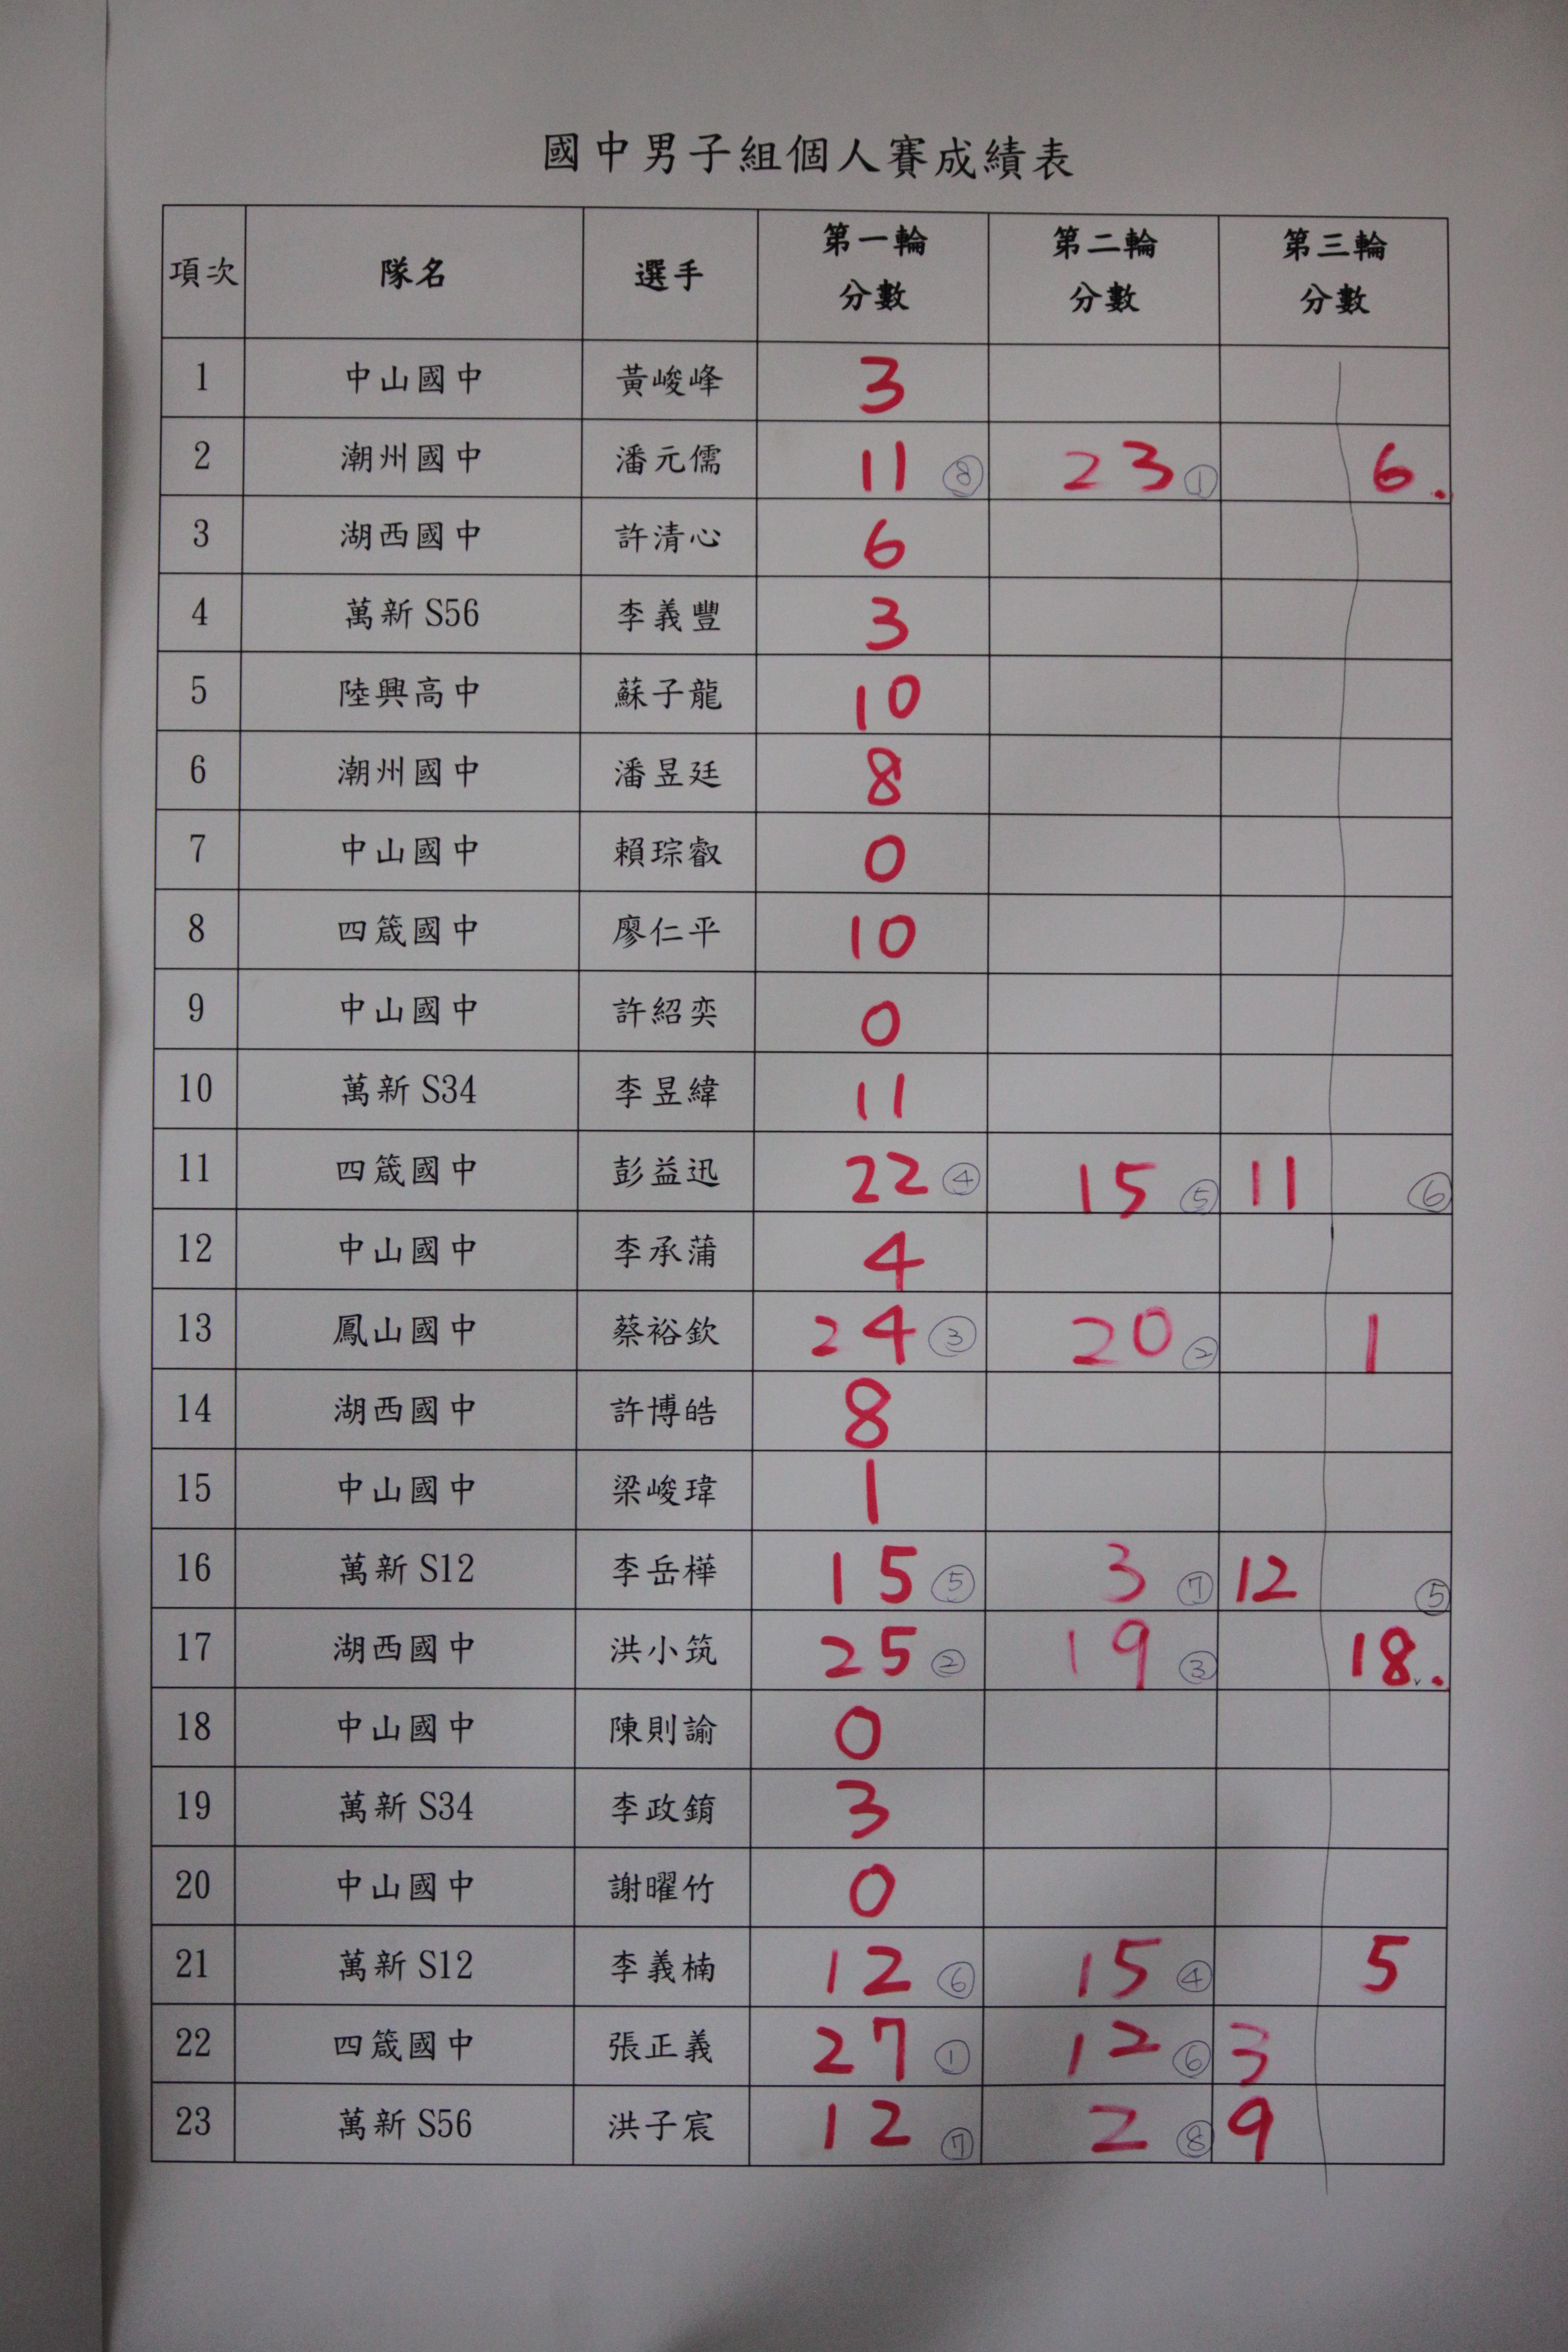 國中男子組個人賽成績表
項次 隊名 選手 第一輪分數 第二輪分數 第三輪分數
1 中山國中 黃峻峰 3
2 潮州國中 潘元儒 11 ⑧ 23 ① 6.
3 湖西國中 許清心 6
4 萬新 S56 李義豐 3
5 陸興高中 蘇子龍 10
6 潮州國中 潘昱廷 8
7 中山國中 賴琮叡 0
8 四箴國中 廖仁平 10
9 中山國中 許紹奕 0
10 萬新 S34 李昱緯 11
11 四箴國中 彭益迅 22 ④ 15 ⑤ 11 ⑥
12 中山國中 李承蒲 4
13 鳳山國中 蔡裕欽 24 ③ 20 ② 1
14 湖西國中 許博皓 8
15 中山國中 梁峻瑋 1
16 萬新 S12 李岳樺 15 ⑤ 3 ⑦ 12 ⑤
17 湖西國中 洪小筑 25 ② 19 ③ 18.
18 中山國中 陳則諭 0
19 萬新 S34 李政銷 3
20 中山國中 謝曜竹 0
21 萬新 S12 李義楠 12 ⑥ 15 ④ 5
22 四箴國中 張正義 27 ① 12 ⑥ 3
23 萬新 S56 洪子宸 12 ⑦ 2 ⑧ 9